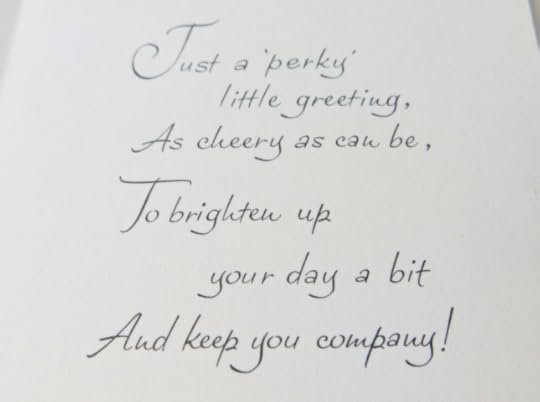 Just a 'perky'
little greeting,
As cheery as can be,
To brighten up
your day a bit
And keep you company!